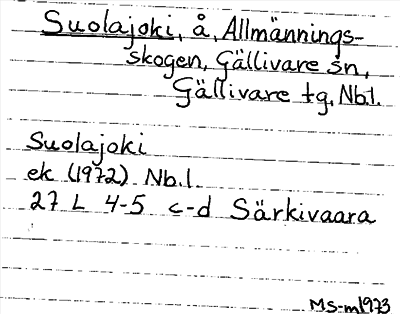 Suolajoki, å, Allmännings-
skogen, Gällivare sn,
Gällivare tg, Nb.l.
Suolajoki
ek (1972) Nb.l.
27 L 4-5 c-d Särkivaara
MS-m1973